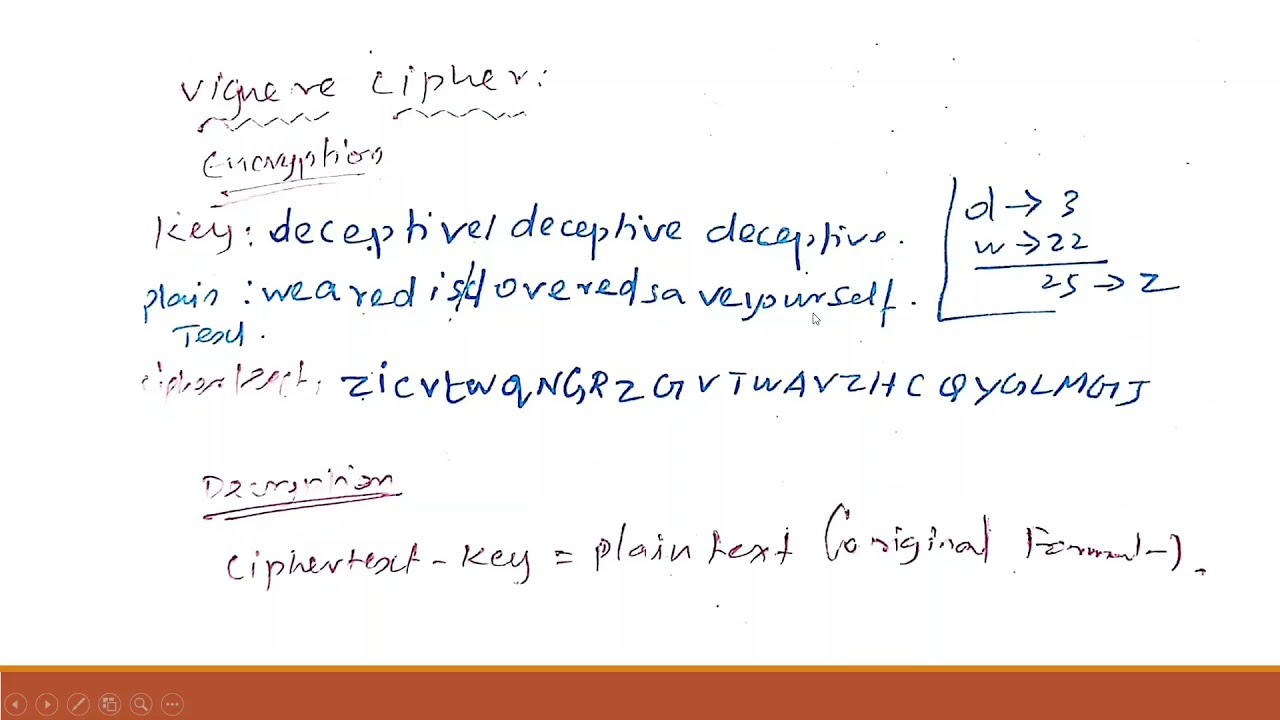 Vignere Cipher:
Encryption
Key: deceptive/ deceptive deceptive.
plain : wearediscoveredsaveyourself.
Text.
ciphertext: ZICVTWQNGRZGVTWAVZHCQYGLMGJ
d → 3
w → 22
25 → Z
Decryption
Ciphertext - Key = plaintext (original Format).